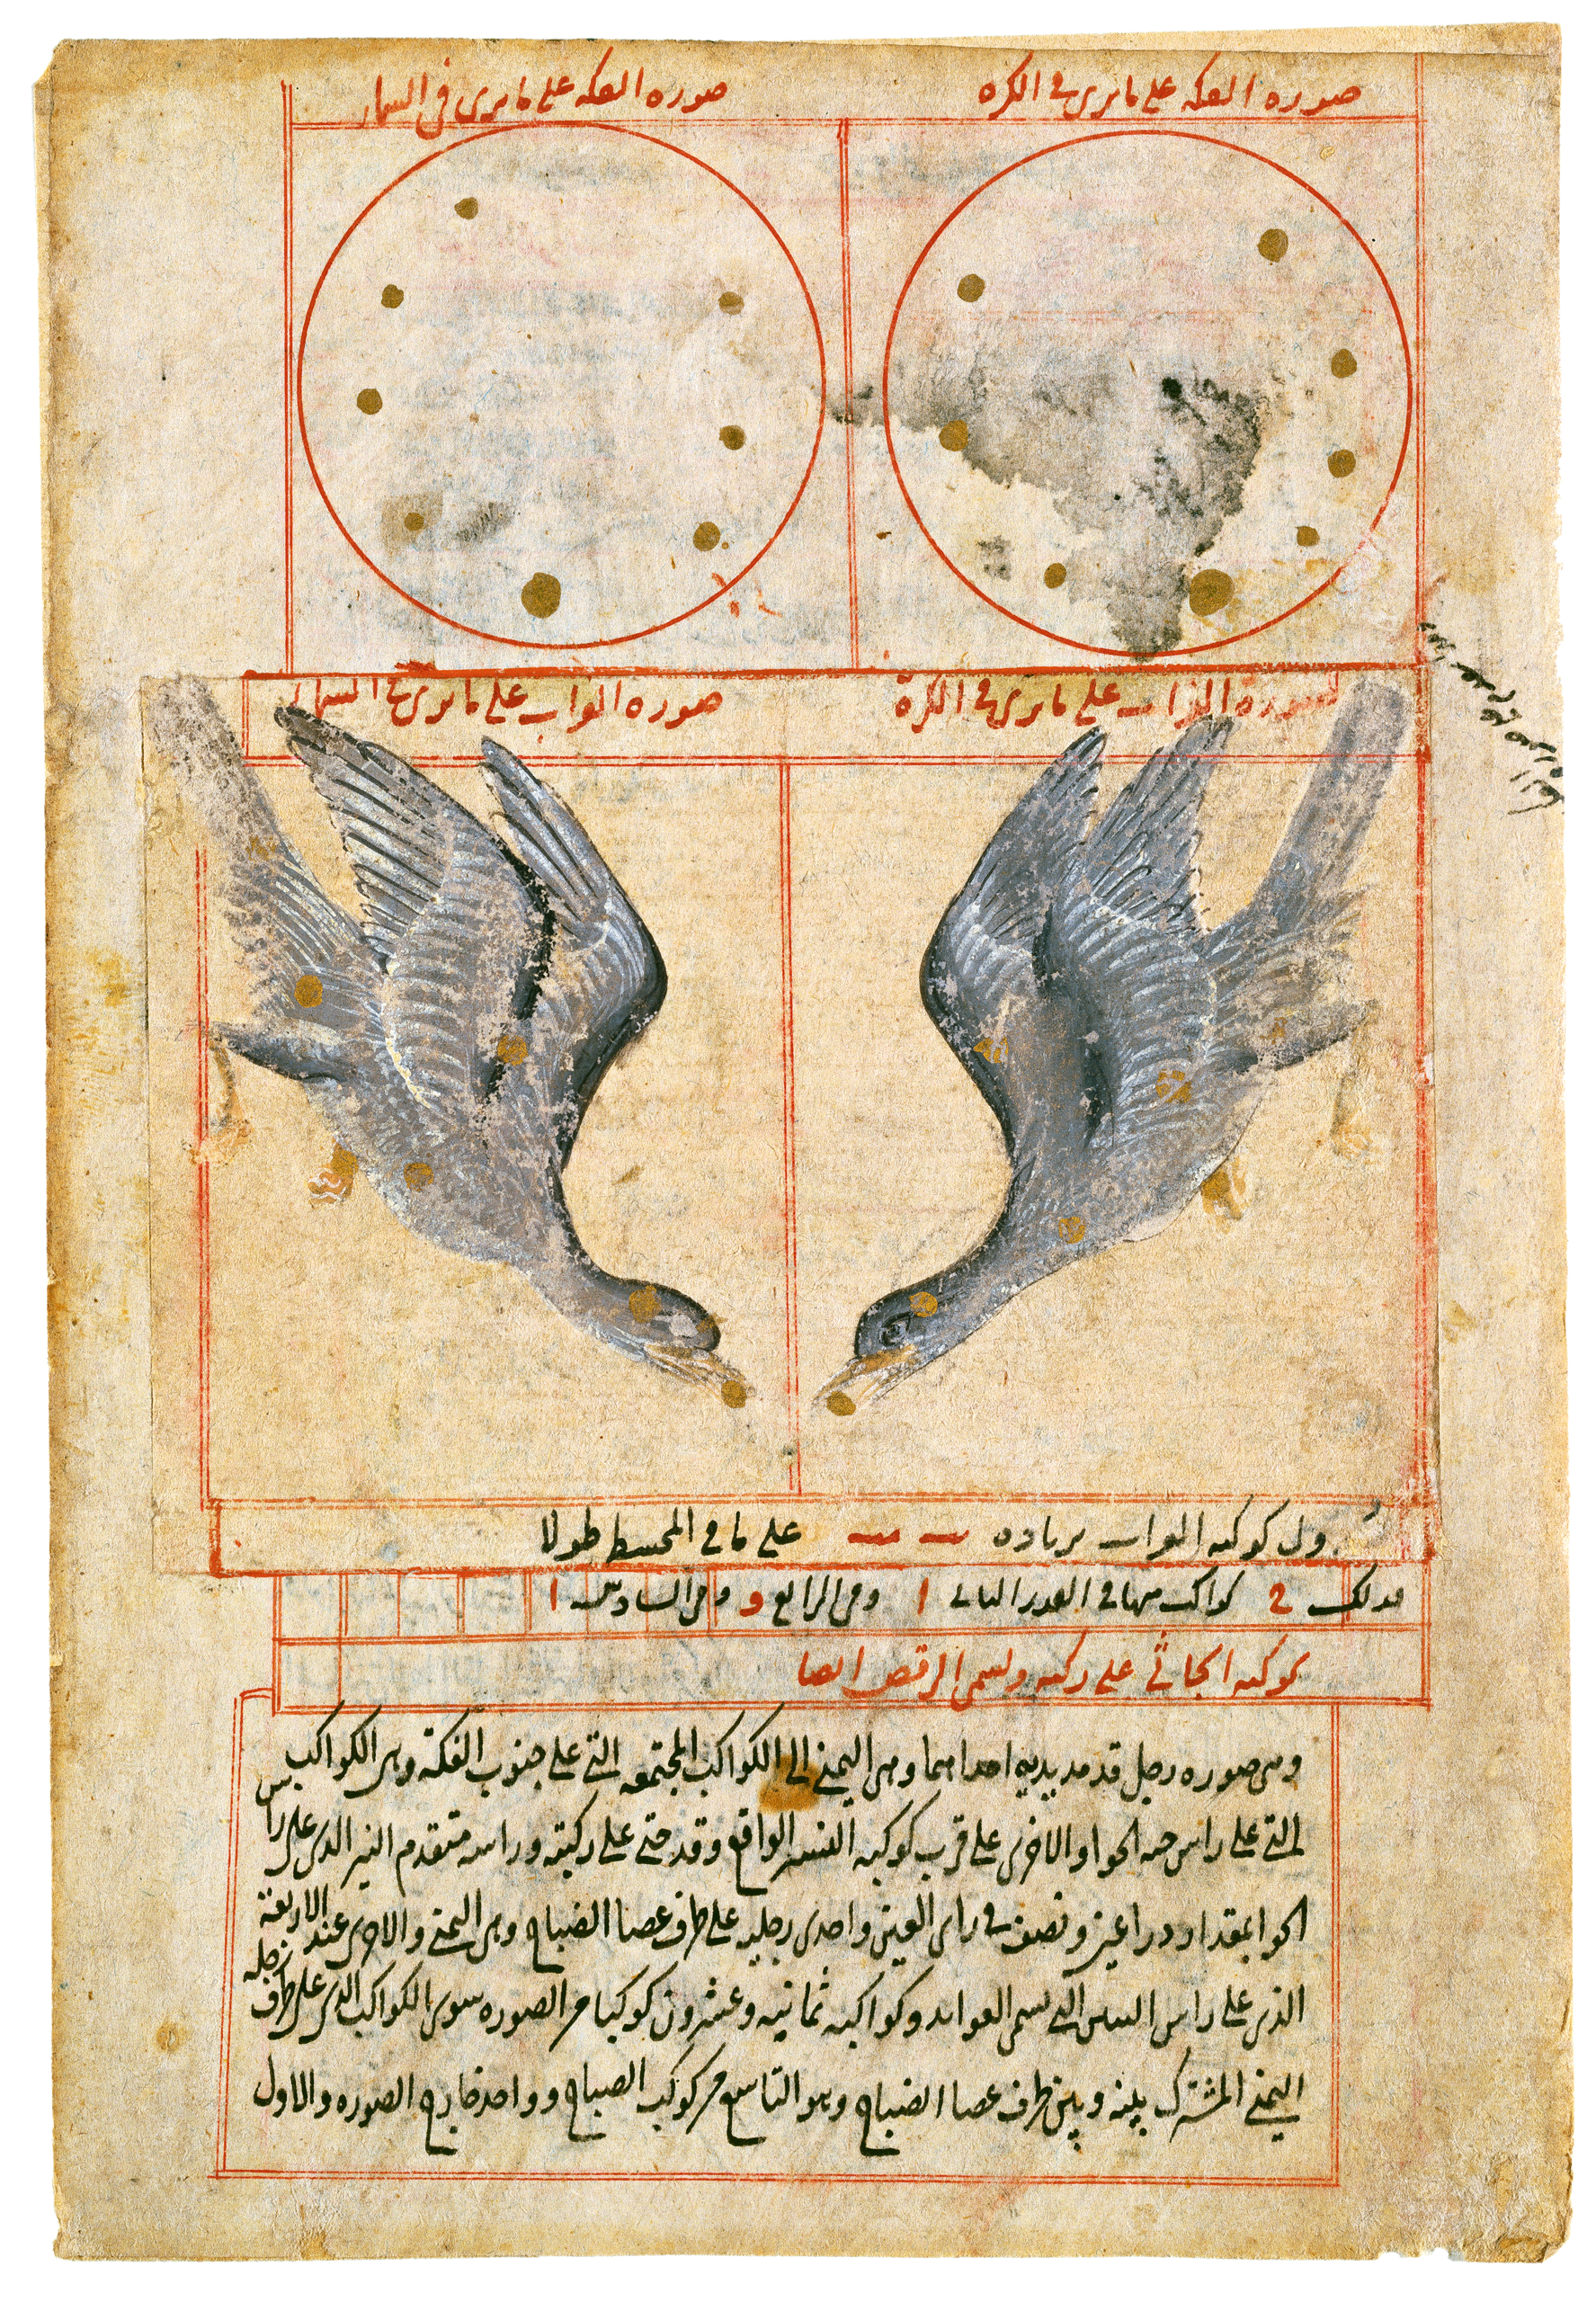 صوره الفكه على ما يرى في الكره
صوره الفكه على ما يرى في السما
صورة الغراب على ما يرى في الكرة
صوره الغراب على ما يرى في السما
كوكبه الغراب بزياده على ما في المجسطي طولا
فذلك كواكب منها في القدر الثالث ا ومن الرابع و ومن السادس ا
كوكبه الجاثي على ركبه ويسمى الرقص ايضا
وهي صوره رجل قد مد يديه احداهما وهي اليمنى الى الكواكب المجتمعه التي على جنوب الفكة وهي الكواكب
التي على راس حيه الحوا والاخرى على قرب كوكبه النسر الواقع وقد جثى على ركبته وراسه متقدم النير الذي على راس
الحوا بمقدار ذراعين ونصف في راى العين واحدى رجليه على طرف عصا الصياح وهي اليمنى والاخرى عند الاربعة
الذي على راس التنين التي تسمى العوايد وكواكبه ثمانيه وعشرون كوكبا من الصوره سوى الكواكب الذي على طرف رجله
اليمنى المشترك بينه وبين طرف عصا الصياح وهو التاسع من كوكب الصياح وواحد خارج الصوره والاول